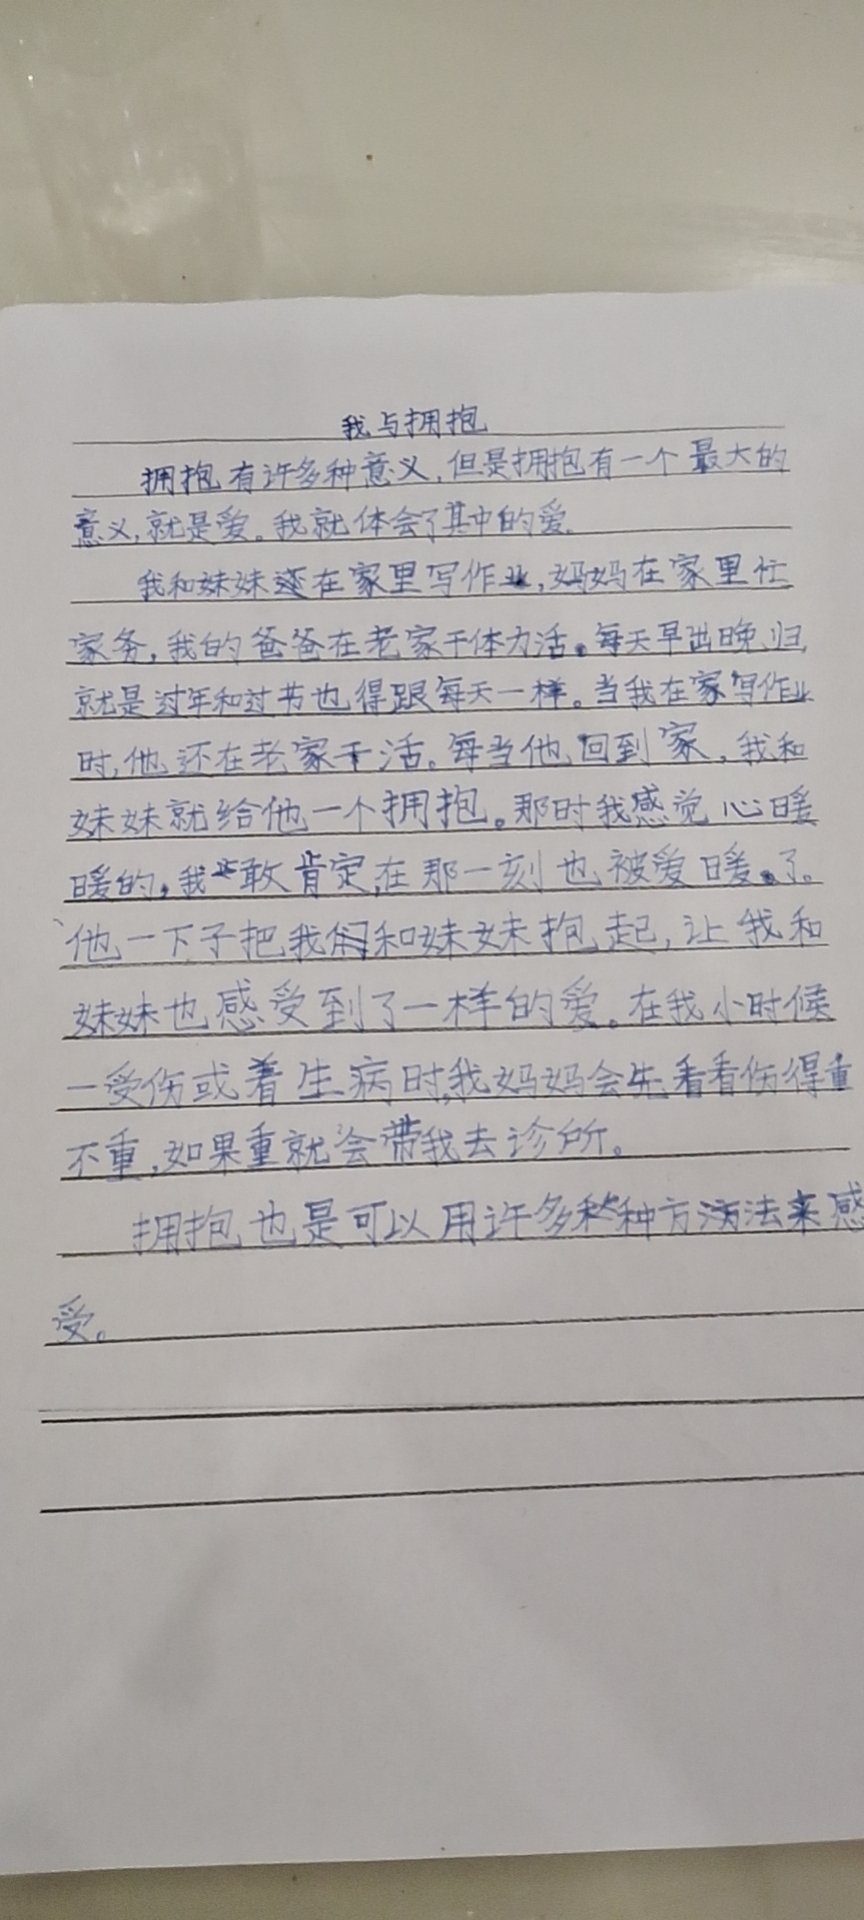 我与拥抱
拥抱有许多种意义,但是拥抱有一个最大的
意义,就是爱。我就体会了其中的爱。
我和妹妹还在家里写作业,妈妈在家里忙
家务,我的爸爸在老家干体力活。每天早出晚归,
就是过年和过节也得跟每天一样。当我在家写作业
时,他还在老家干活。每当他回到家,我和
妹妹就给他一个拥抱。那时我感觉心暖
暖的,我敢肯定,在那一刻也被爱暖了。
他一下子把我和妹妹抱起,让我和
妹妹也感受到了一样的爱。在我小时候
一受伤或着生病时,我妈妈会先看看伤得重
不重,如果重就会带我去诊所。
拥抱也是可以用许多种方法来感
受。